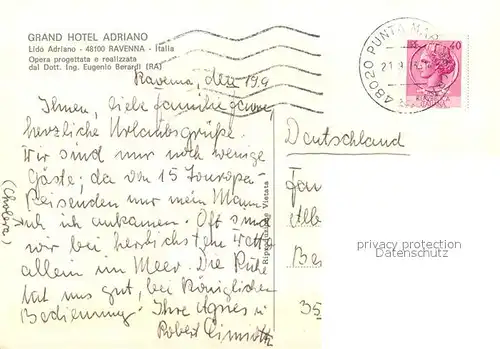 GRAND HOTEL ADRIANO
Lido Adriano - 48100 RAVENNA - Italia
Opera progettata e realizzata
dal Dott. Ing. Eugenio Berardi (RA)
Ravenna, den 19.9.
Ihnen, liebe Familie
herzliche Urlaubsgrüße.
Wir sind nur noch wenige
Gäste, da von 15 Touropa-
Reisenden nur mein Mann
u. ich ankamen. Oft sind
(Cholera)
wir bei herbichstem Wetter
allein im Meer. Die Ruhe
tut uns gut, bei königlicher
Bedienung. Ihre Agnes u.
Robert
Riproduzione Vietata
48020 PUNTA MAR
21.9
40
Deutschland
Fam
Be
35
privacy protection
Datenschutz